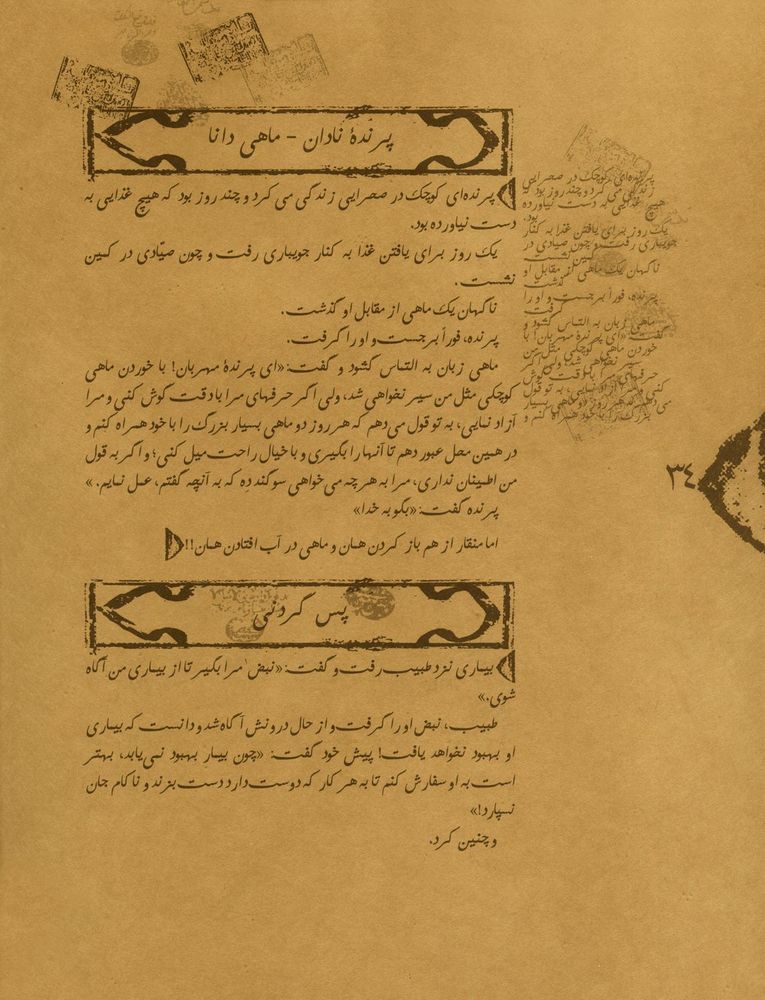 پرندهٔ نادان - ماهی دانا
پرنده‌ای کوچک در صحرایی زندگی می کرد و چند روز بود که هیچ غذایی به
دست نیاورده بود.
یک روز برای یافتن غذا به کنار جویباری رفت و چون صیّادی در کمین
نشست.
ناگهان یک ماهی از مقابل او گذشت.
پرنده، فوراً برجست و او را گرفت.
ماهی زبان به التماس گشود و گفت: «ای پرندهٔ مهربان! با خوردن ماهی
کوچکی مثل من سیر نخواهی شد، ولی اگر حرفهای مرا با دقت گوش کنی و مرا
آزاد نمایی، به تو قول می‌دهم که هر روز دو ماهی بسیار بزرگ را با خود همراه کنم و
در همین محل عبور دهم تا آنها را بگیری و با خیال راحت میل کنی؛ و اگر به قول
من اطمینان نداری، مرا به هر چه می‌خواهی سوگند دِه که به آنچه گفتم، عمل نمایم.»
پرنده گفت: «بگو به خدا»
اما منقار از هم باز کردن همان و ماهی در آب افتادن همان!!
پرنده‌ای کوچک در صحرایی
زندگی می کرد و چند روز بود که
هیچ غذایی به دست نیاورده
بود.
یک روز برای یافتن غذا به کنار
جویباری رفت و چون صیّادی در
کمین نشست.
ناگهان یک ماهی از مقابل او
گذشت.
پرنده، فوراً برجست و او را
گرفت.
ماهی زبان به التماس گشود و
گفت: «ای پرندهٔ مهربان! با
خوردن ماهی کوچکی مثل من
سیر نخواهی شد، ولی اگر
حرفهای مرا با دقت گوش
کنی و مرا آزاد نمایی، به تو قول
می‌دهم که هر روز دو ماهی بسیار
بزرگ را با خود همراه کنم و
۳۴
پس گردنی
بیماری نزد طبیب رفت و گفت: «نبض مرا بگیر تا از بیماری من آگاه
شوی.»
طبیب، نبض او را گرفت و از حال درونش آگاه شد و دانست که بیماری
او بهبود نخواهد یافت! پیش خود گفت: «چون بیمار بهبود نمی‌یابد، بهتر
است به او سفارش کنم تا به هر کار که دوست دارد دست بزند و ناکام جان
نسپارد!»
و چنین کرد.